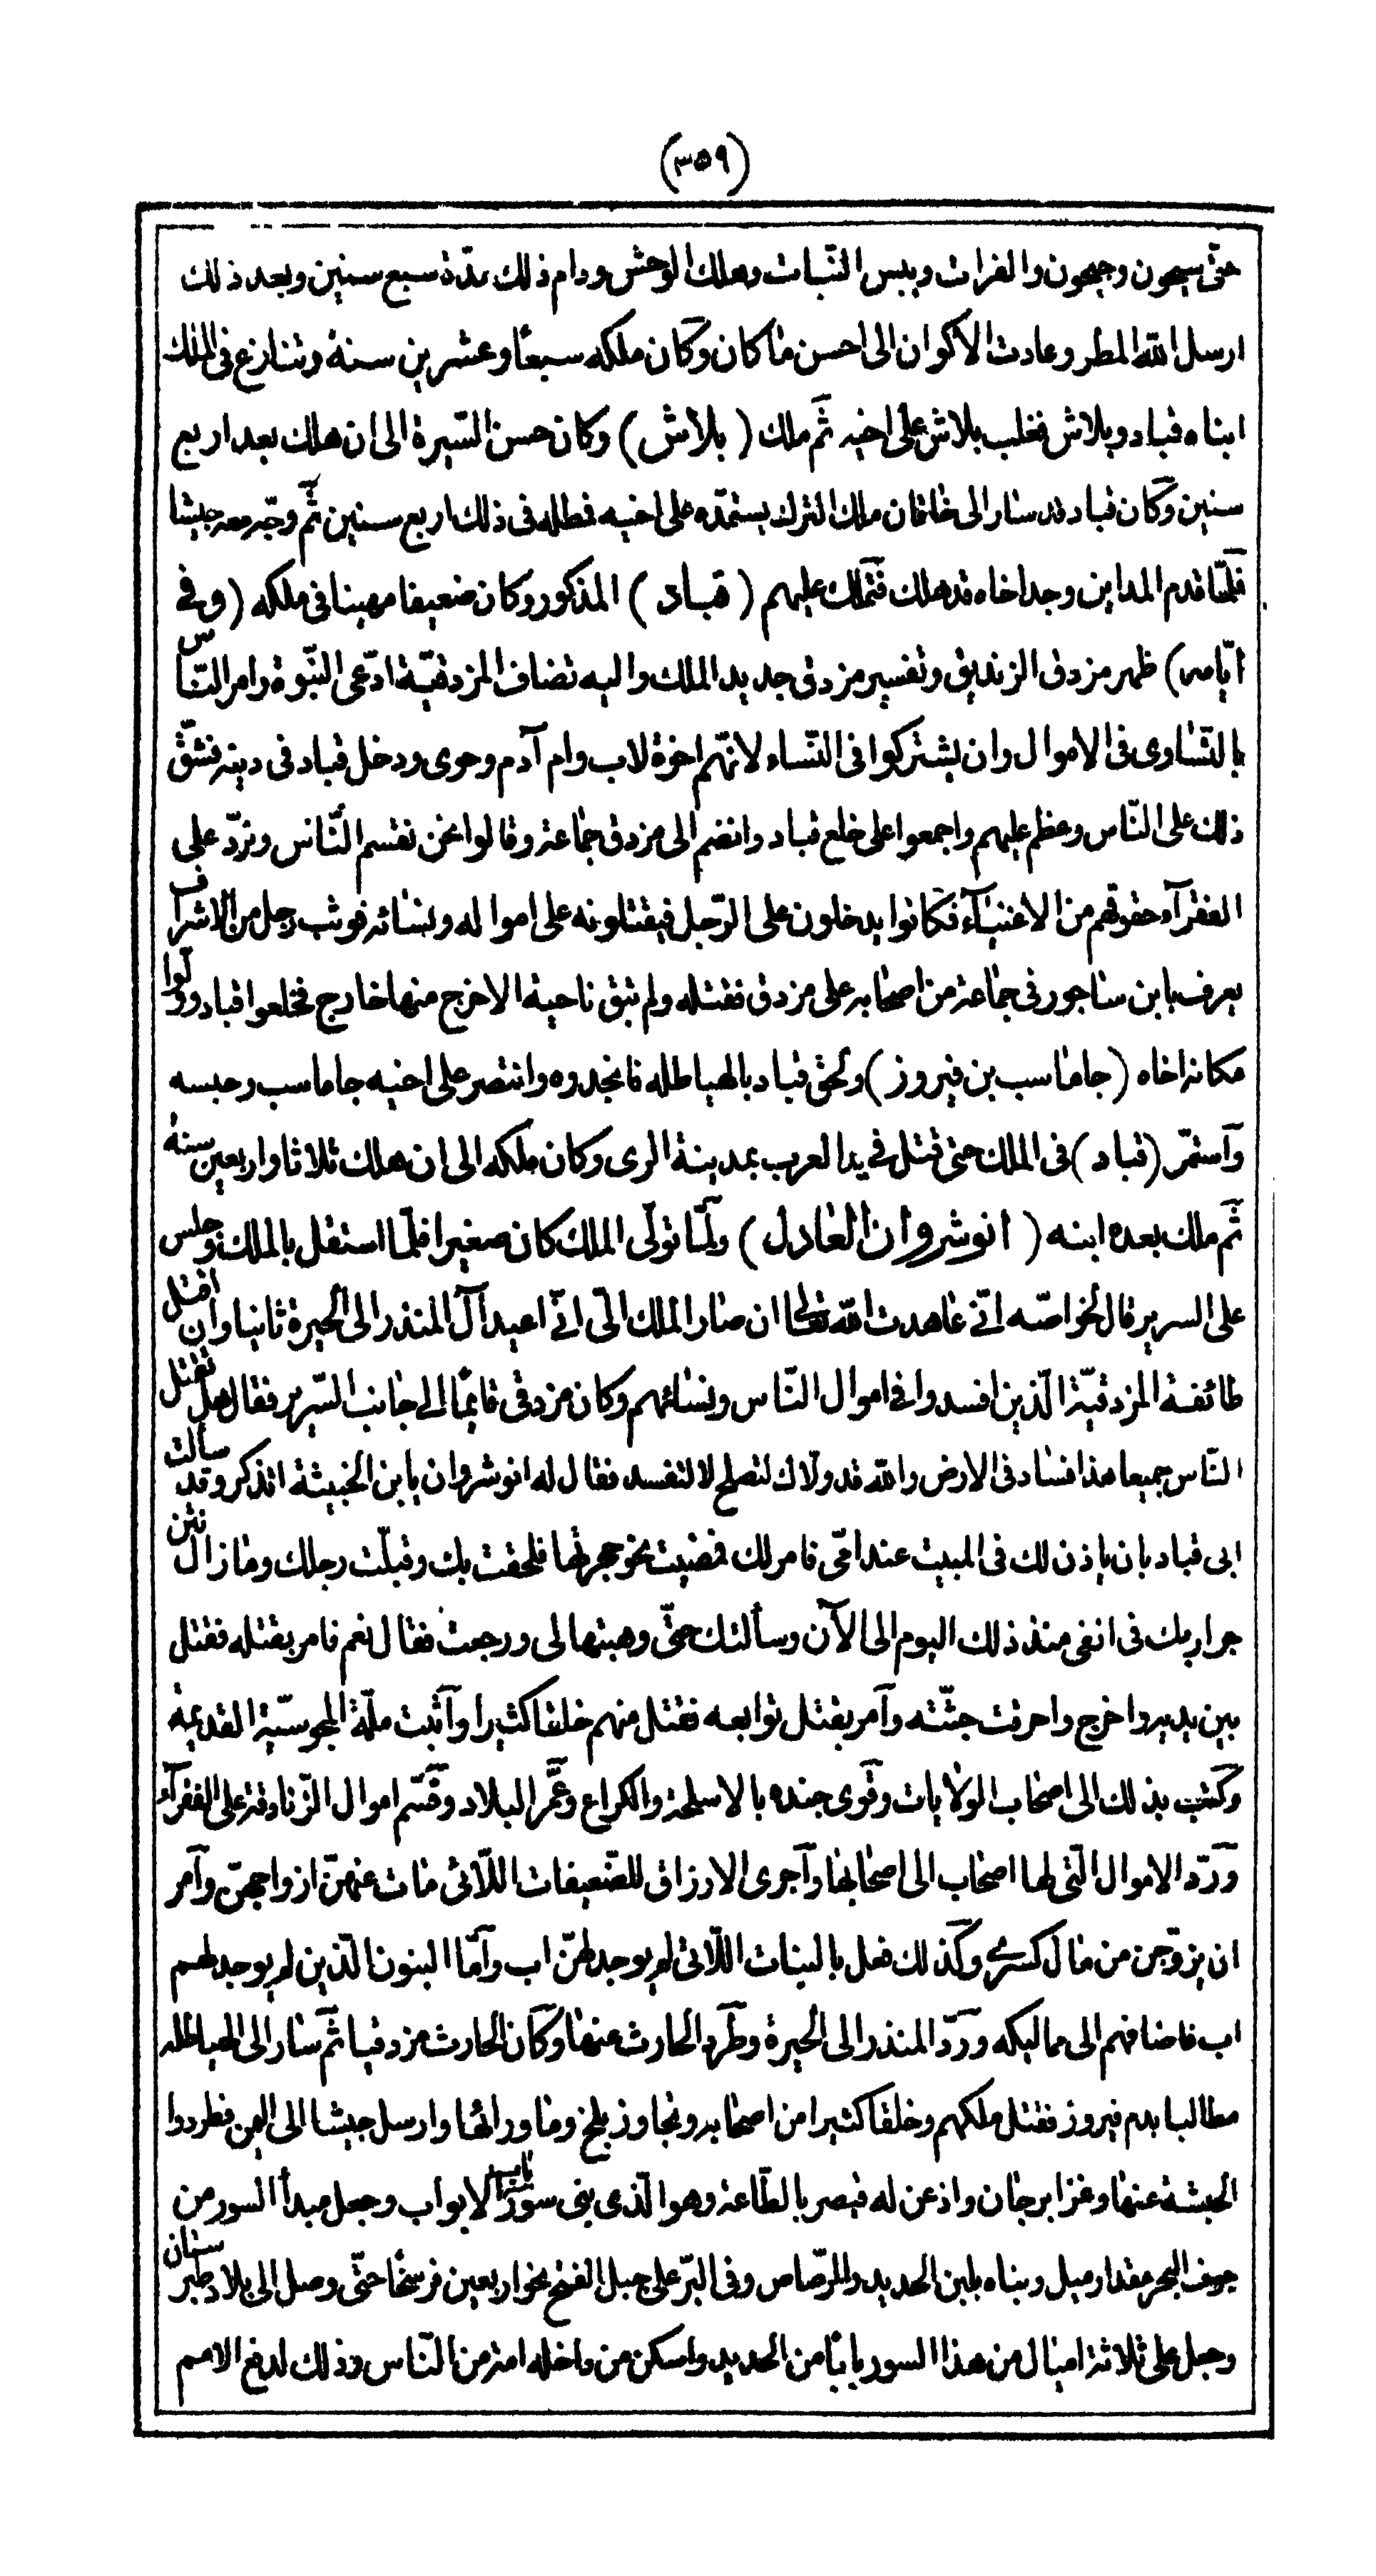 (٣٥٩)
حتّى سيحون وجيحون والفرات ويبس النّبات وهلك الوحش ودام ذلك مدّة سبع سنين وبعد ذلك
ارسل اللّه المطر وعادت الاكوان الى احسن ما كان وكان ملكه سبعًا وعشرين سنة وتنازع فى الملك
ابناه قباد وبلاش فغلب بلاش على اخيه ثمّ ملك ( بلاش ) وكان حسن السّيرة الى ان هلك بعد اربع
سنين وكان قباد قد سار الى خاقان ملك الترك يستمدّه على اخيه فطله فى ذلك اربع سنين ثمّ وجّه معه جيشا
فلمّا قدم المداين وجد اخاه قد هلك فتملّك عليهم ( قباد ) المذكور وكان ضعيفا مهينا فى ملكه ( وفي
ايّامه ) ظهر مزدق الزنديق وتفسير مزدق جديد الملك واليه تضاف المزدقيّة ادّعى النّبوة وامر النّاس
بالتّساوى فى الاموال وان يشتركوا فى النّساء لانّهم اخوة لاب وام آدم وحوى ودخل قباد فى دينه فشقّ
ذلك على النّاس وعظم عليهم واجمعوا على خلع قباد وانضم الى مزدق جماعة وقالوا نحن نقسم النّاس ونردّ على
الفقرآء حقوقهم من الاغنيآء فكانوا يدخلون على الرّجل فيقتلونه على امواله ونسائه فوثب رجل من الاشراف
يعرف بابن ساجور فى جماعة من اصحابه على مزدق فقتله ولم تبق ناحية الا خرج منها خارج فخلعوا قباد وولّوا
مكانه اخاه ( جاماسب بن فيروز ) ولحق قباد بالهياطله فانجدوه وانتصر على اخيه جاماسب وحبسه
وآستمّر ( قباد ) فى الملك حتى قتل في يد العرب بمدينة الرى وكان ملكه الى ان هلك ثلاثا واربعين سنة
ثمّ ملك بعده ابنه ( انوشروان العادل ) ولمّا تولّى الملك كان صغيرا فلمّا استقل بالملك وجلس
على السرير قال لخواصّه انّي عاهدت اللّه تعالى ان صار الملك الىّ انّي اعيد آل المنذر الى الحيرة ثانيا وان اقتل
طائفة المزدقيّة الّذين افسدوا في اموال النّاس ونسائهم وكان مزدق قايمًا الى جانب السّرير فقال هل تقتل
النّاس جميعا هذا فساد فى الارض واللّه قد ولّاك لتصلح لا لتفسد فقال له انوشروان يابن الخبيثة اتذكر وقد سألت
ابى قباد بان ياذن لك فى المبيت عند امّى فامر لك فمضيت نحو حجرتها فلحقت بك وقبلّت رجلك وما زال نتن
جراربك فى انفى منذ ذلك اليوم الى الآن وسألتك حتّى وهبتها لى ورجعت فقال نعم فامر بقتله فقتل
بين يديه واخرج واحرقت جثّته وآمر بقتل توابعه فقتل منهم خلقا كثيرا وآثبت ملّة المجوسيّة القديمة
وكتب بذلك الى اصحاب الولايات وقوى جنده بالاسلحة والكراع وعمّر البلاد وقسّم اموال الزّنادقة على الفقرآء
وردّ الاموال الّتى لها اصحاب الى اصحابها وآجرى الارزاق للضّعيفات اللّائى مات عنهنّ ازواجهنّ وآمر
ان يزوّجن من مال كسرى وكذلك فعل بالبنات اللّاتى لم يوجد لهنّ اب وآمّا البنون الّذين لم يوجد لهم
اب فاضافهم الى مماليكه وردّ المنذر الى الحيرة وطرد الحارث عنها وكان الحارث مزدقيا ثمّ سار الى الهياطله
مطالبا بدم فيروز فقتل ملكهم وخلقا كثيرا من اصحابه وتجاوز بلخ وما ورائها وارسل جيشا الى اليمن فطردوا
الحبشة عنها وغزا برجان واذعن له قيصر بالطّاعة وهو الّذى بنى سور باب الابواب وجعل مبدأ السور من
جوف البحر مقدار ميل وبناه بلبن الحديد والرّصاص وفى البرّ على جبل الفتح نحو اربعين فرسخًا حتّى وصل الى بلاد طبرستان
وجعل على ثلاثة اميال من هذا السور بابًا من الحديد واسكن من داخله امة من النّاس وذلك لدفع الامم